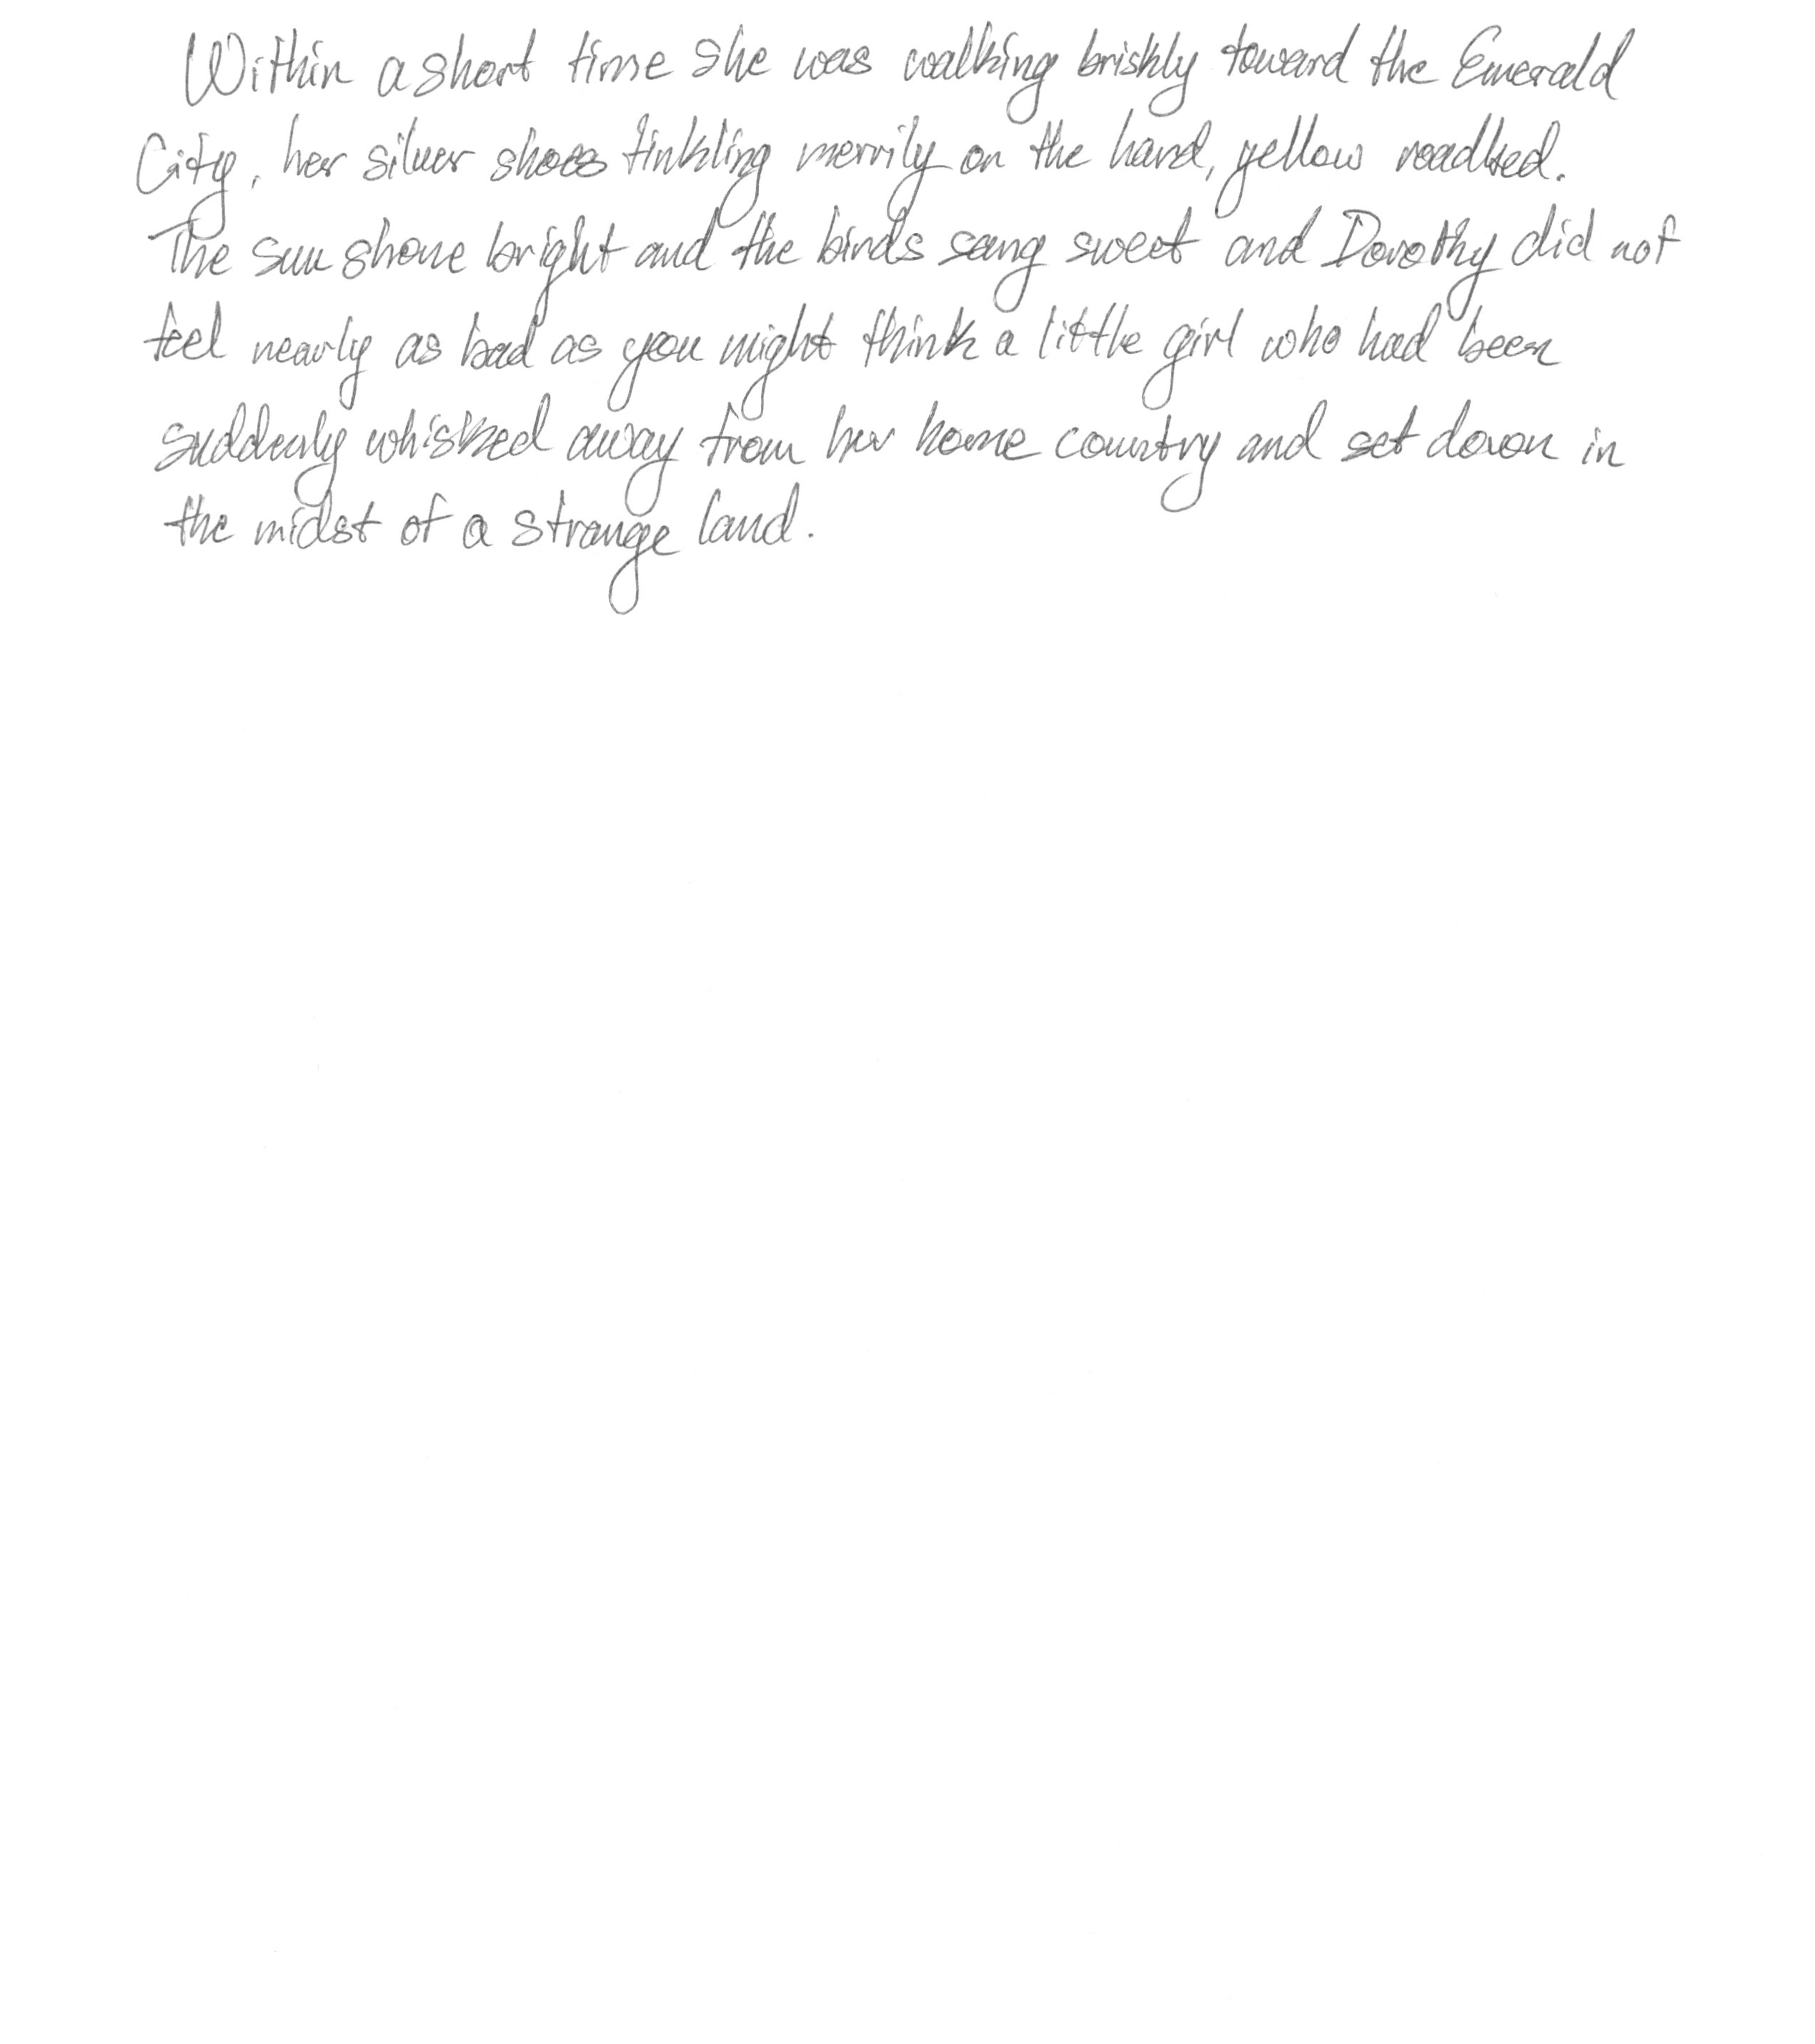 Within a short time she was walking briskly toward the Emerald
City, her silver shoes tinkling merrily on the hard, yellow roadbed.
The sun shone bright and the birds sang sweet and Dorothy did not
feel nearly as bad as you might think a little girl who had been
suddenly whisked away from her home country and set down in
the midst of a strange land.